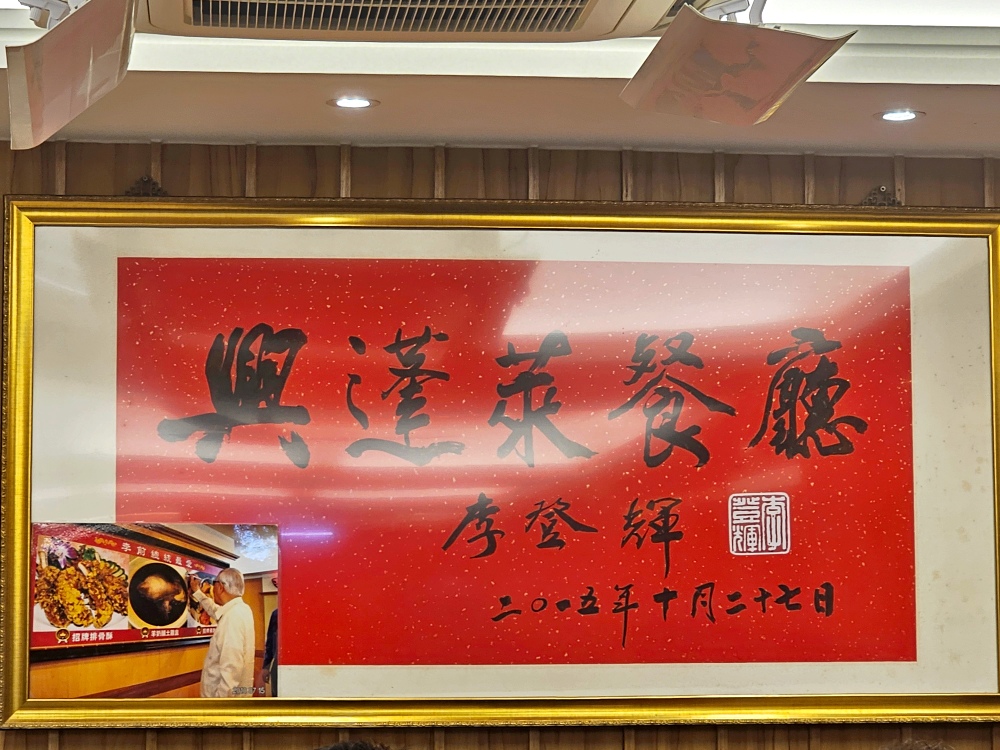 興蓬萊餐廳
李登輝
李登輝
二〇一五年十月二十七日
李前總統最愛
招牌排骨酥